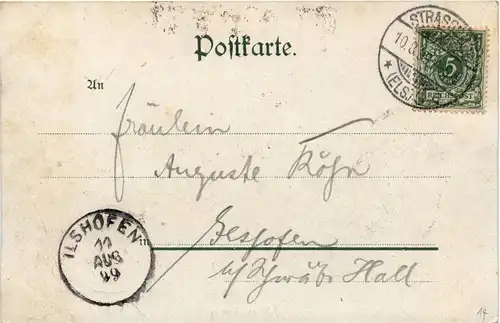 Postkarte.
STRASSB
10.8
(ELS.)
5
REICHSPOST
An
Fräulein
Auguste
in
ILSHOFEN
11
AUG
99
Schwäb. Hall
14